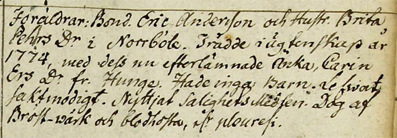 Föräldrar: Bond. Eric Anderson och Hustr. Brita
Pehrs Dr i Norrbole. Trädde i ägtenskap år
1774, med dess nu efterlämnade Enka, Carin
Ers Dr. fr. Hunge. Hade inga Barn. Lefwat
saktmodigt. Nyttjat Salighets Medlen. Dog af
Bröst-wärk och blodhosta, ell. pleuresi.